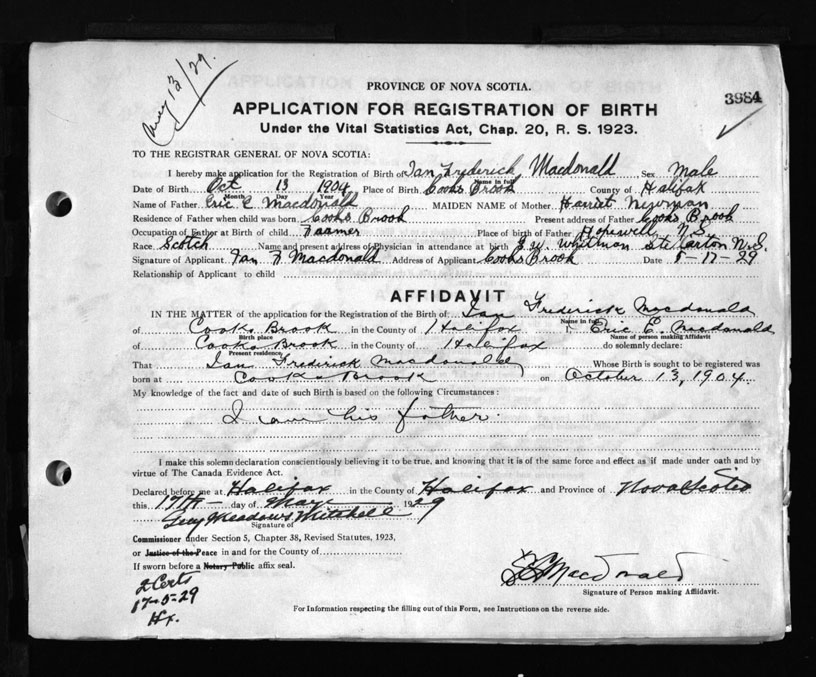 May 13/29.
PROVINCE OF NOVA SCOTIA.
3984
APPLICATION FOR REGISTRATION OF BIRTH
Under the Vital Statistics Act, Chap. 20, R. S. 1923.
TO THE REGISTRAR GENERAL OF NOVA SCOTIA:
I hereby make application for the Registration of Birth of Ian Frederick Macdonald Sex Male
Name in full
Date of Birth Oct 13 1904 Place of Birth Cooks Brook County of Halifax
Month Day Year
Name of Father Eric E Macdonald MAIDEN NAME of Mother Harriet
Residence of Father when child was born Cooks Brook Present address of Father Cooks Brook
Occupation of Father at Birth of child Faamer Place of birth of Father Hopewell N.S.
Race Scotch Name and present address of Physician in attendance at birth Whitman Stellarton N.S.
Signature of Applicant Ian F Macdonald Address of Applicant Cooks Brook Date 5-17-29
Relationship of Applicant to child
AFFIDAVIT
IN THE MATTER of the application for the Registration of the Birth of: Ian Frederick Macdonald
Name in full
of Cooks Brook in the County of Halifax I, Eric E. Macdonald
Birth place Name of person making Affidavit
of Cooks Brook in the County of Halifax do solemnly declare:
Present residence
That Ian Frederick Macdonald Whose Birth is sought to be registered was
born at Cooks Brook on October 13, 1904
My knowledge of the fact and date of such Birth is based on the following Circumstances:
I am his father.
I make this solemn declaration conscientiously believing it to be true, and knowing that it is of the same force and effect as if made under oath and by
virtue of The Canada Evidence Act.
Declared before me at Halifax in the County of Halifax and Province of Nova Scotia
this 17th day of May 1929
Guy Meadows Mitchell
Signature of
Commissioner under Section 5, Chapter 38, Revised Statutes, 1923,
or Justice of the Peace in and for the County of
If sworn before a Notary Public affix seal.
2 Certs
17-5-29
Hx.
E E Macdonald
Signature of Person making Affidavit.
For Information respecting the filling out of this Form, see Instructions on the reverse side.